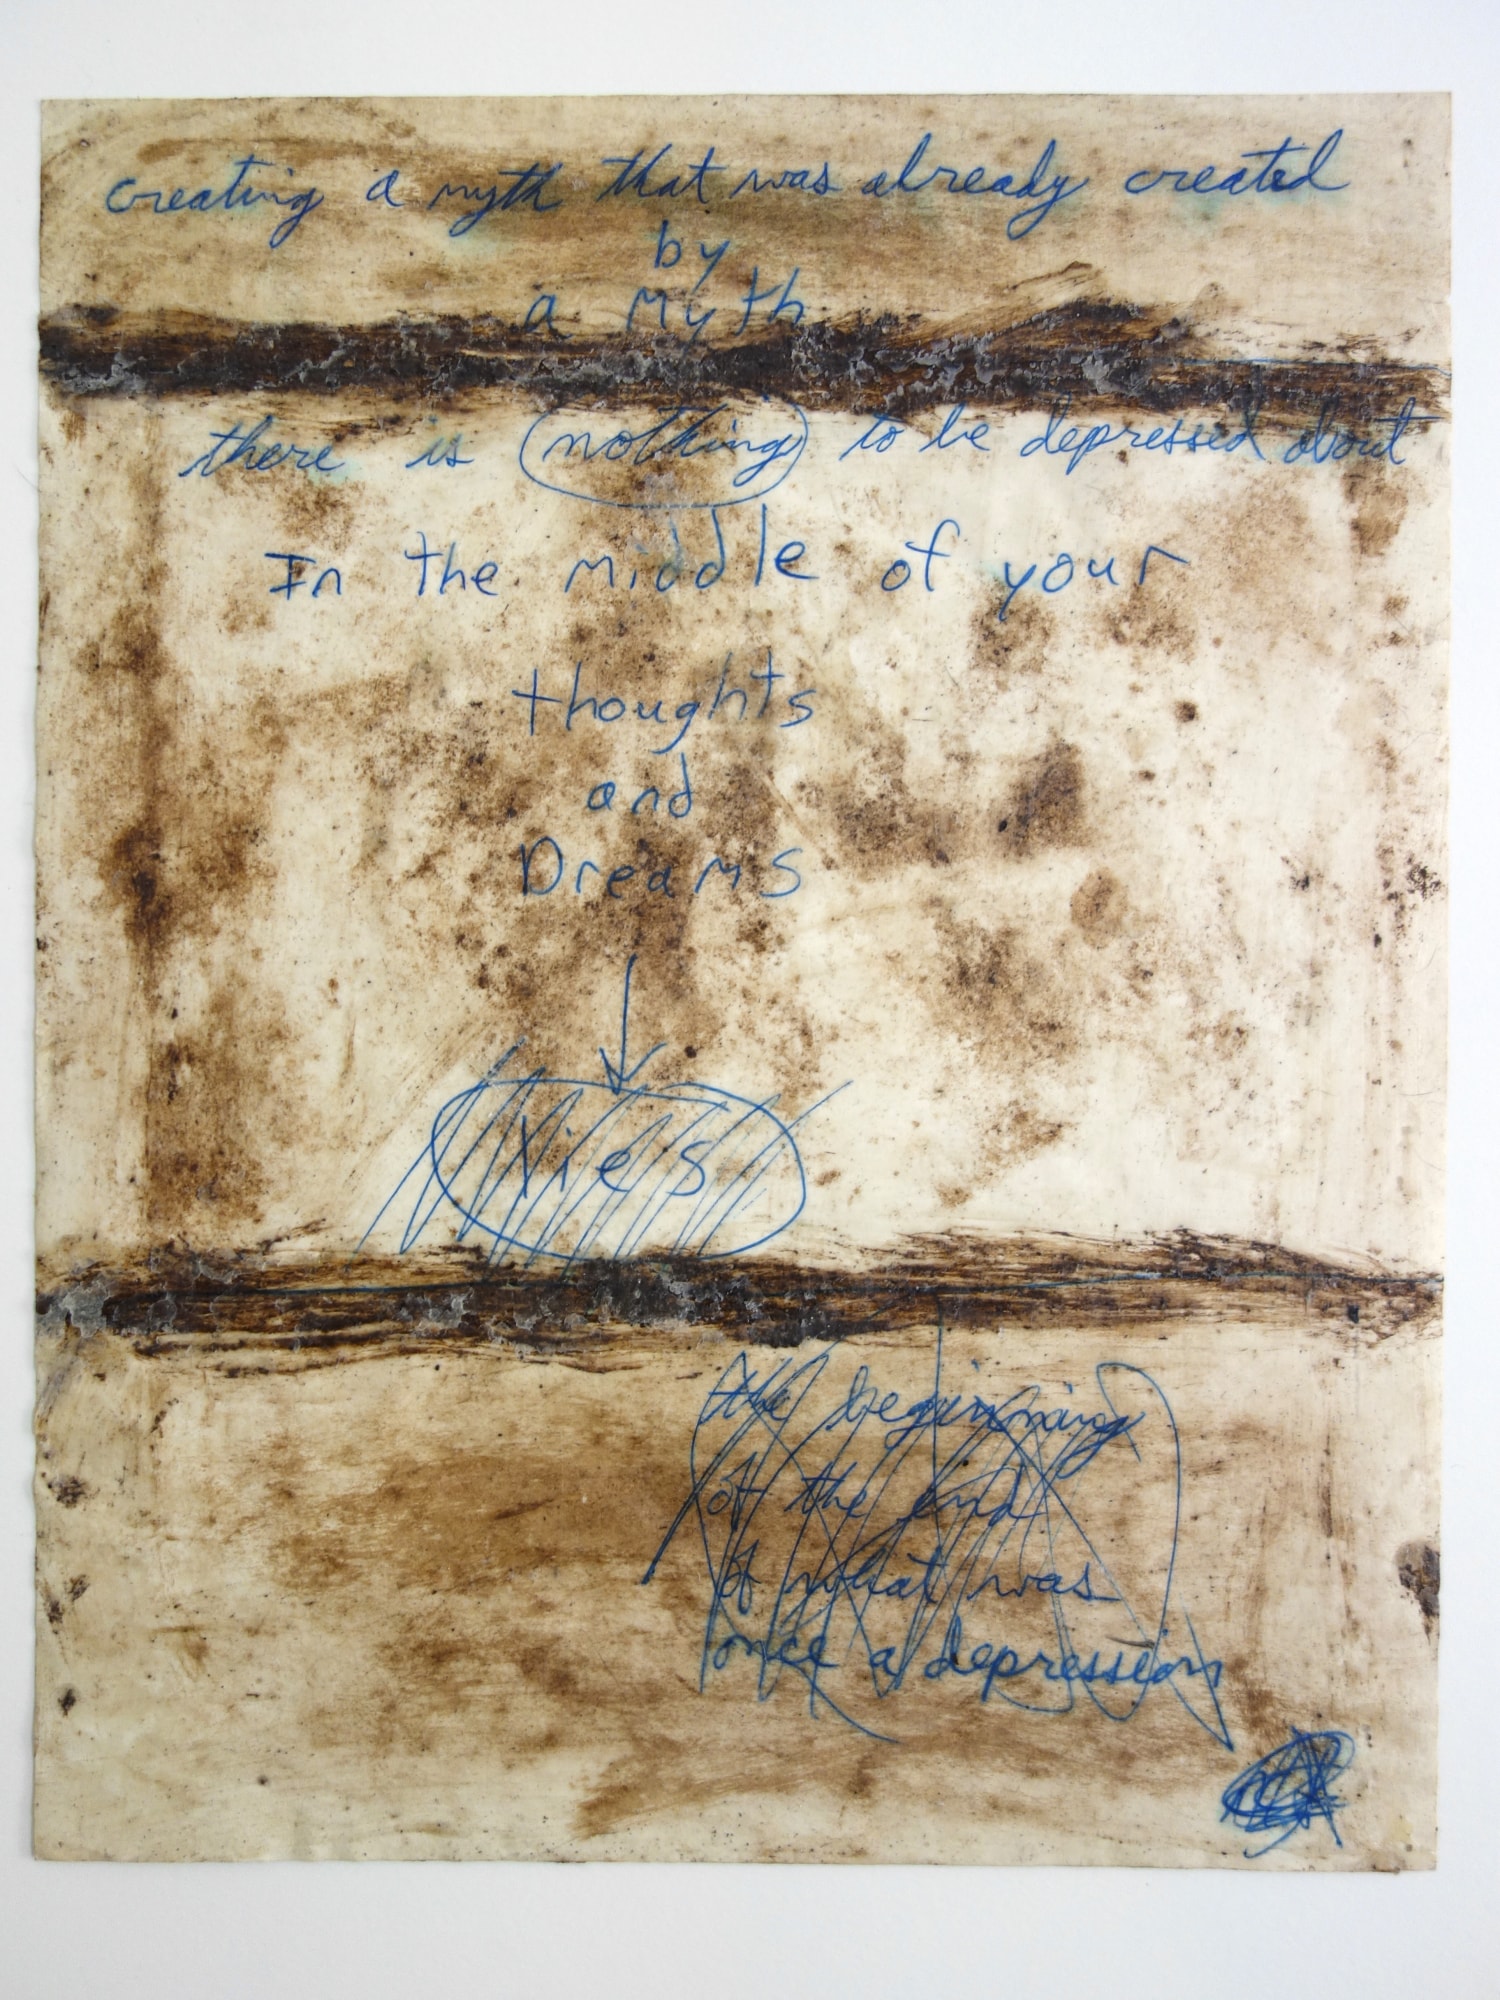 creating a myth that was already created
by
a Myth
there is nothing to be depressed about
In the middle of your
thoughts
and
Dreams
lies
the beginning
of the end
of what was
once a depression